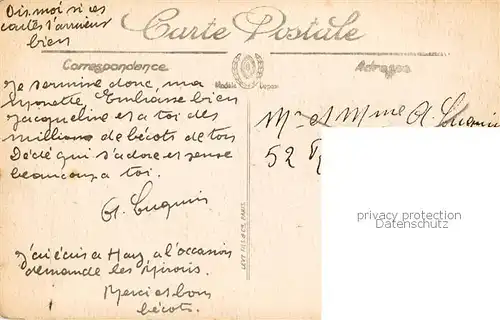 Dis-moi si ces
cartes t'arrivent
bien
Carte Postale
Correspondance
Adresse
Modèle Dépos
Je termine donc, ma
Embrasse bien
Jacqueline et a toi des
millions de bécots de ton
Dédé qui t'adore et pense
beaucoup a toi.
Mr et Mme A.
52
LEVY FILS & Cie, PARIS
privacy protection
(watermark)
J'ai écris a Hay, a l'occasion
demande les
Merci et bons
bécots.